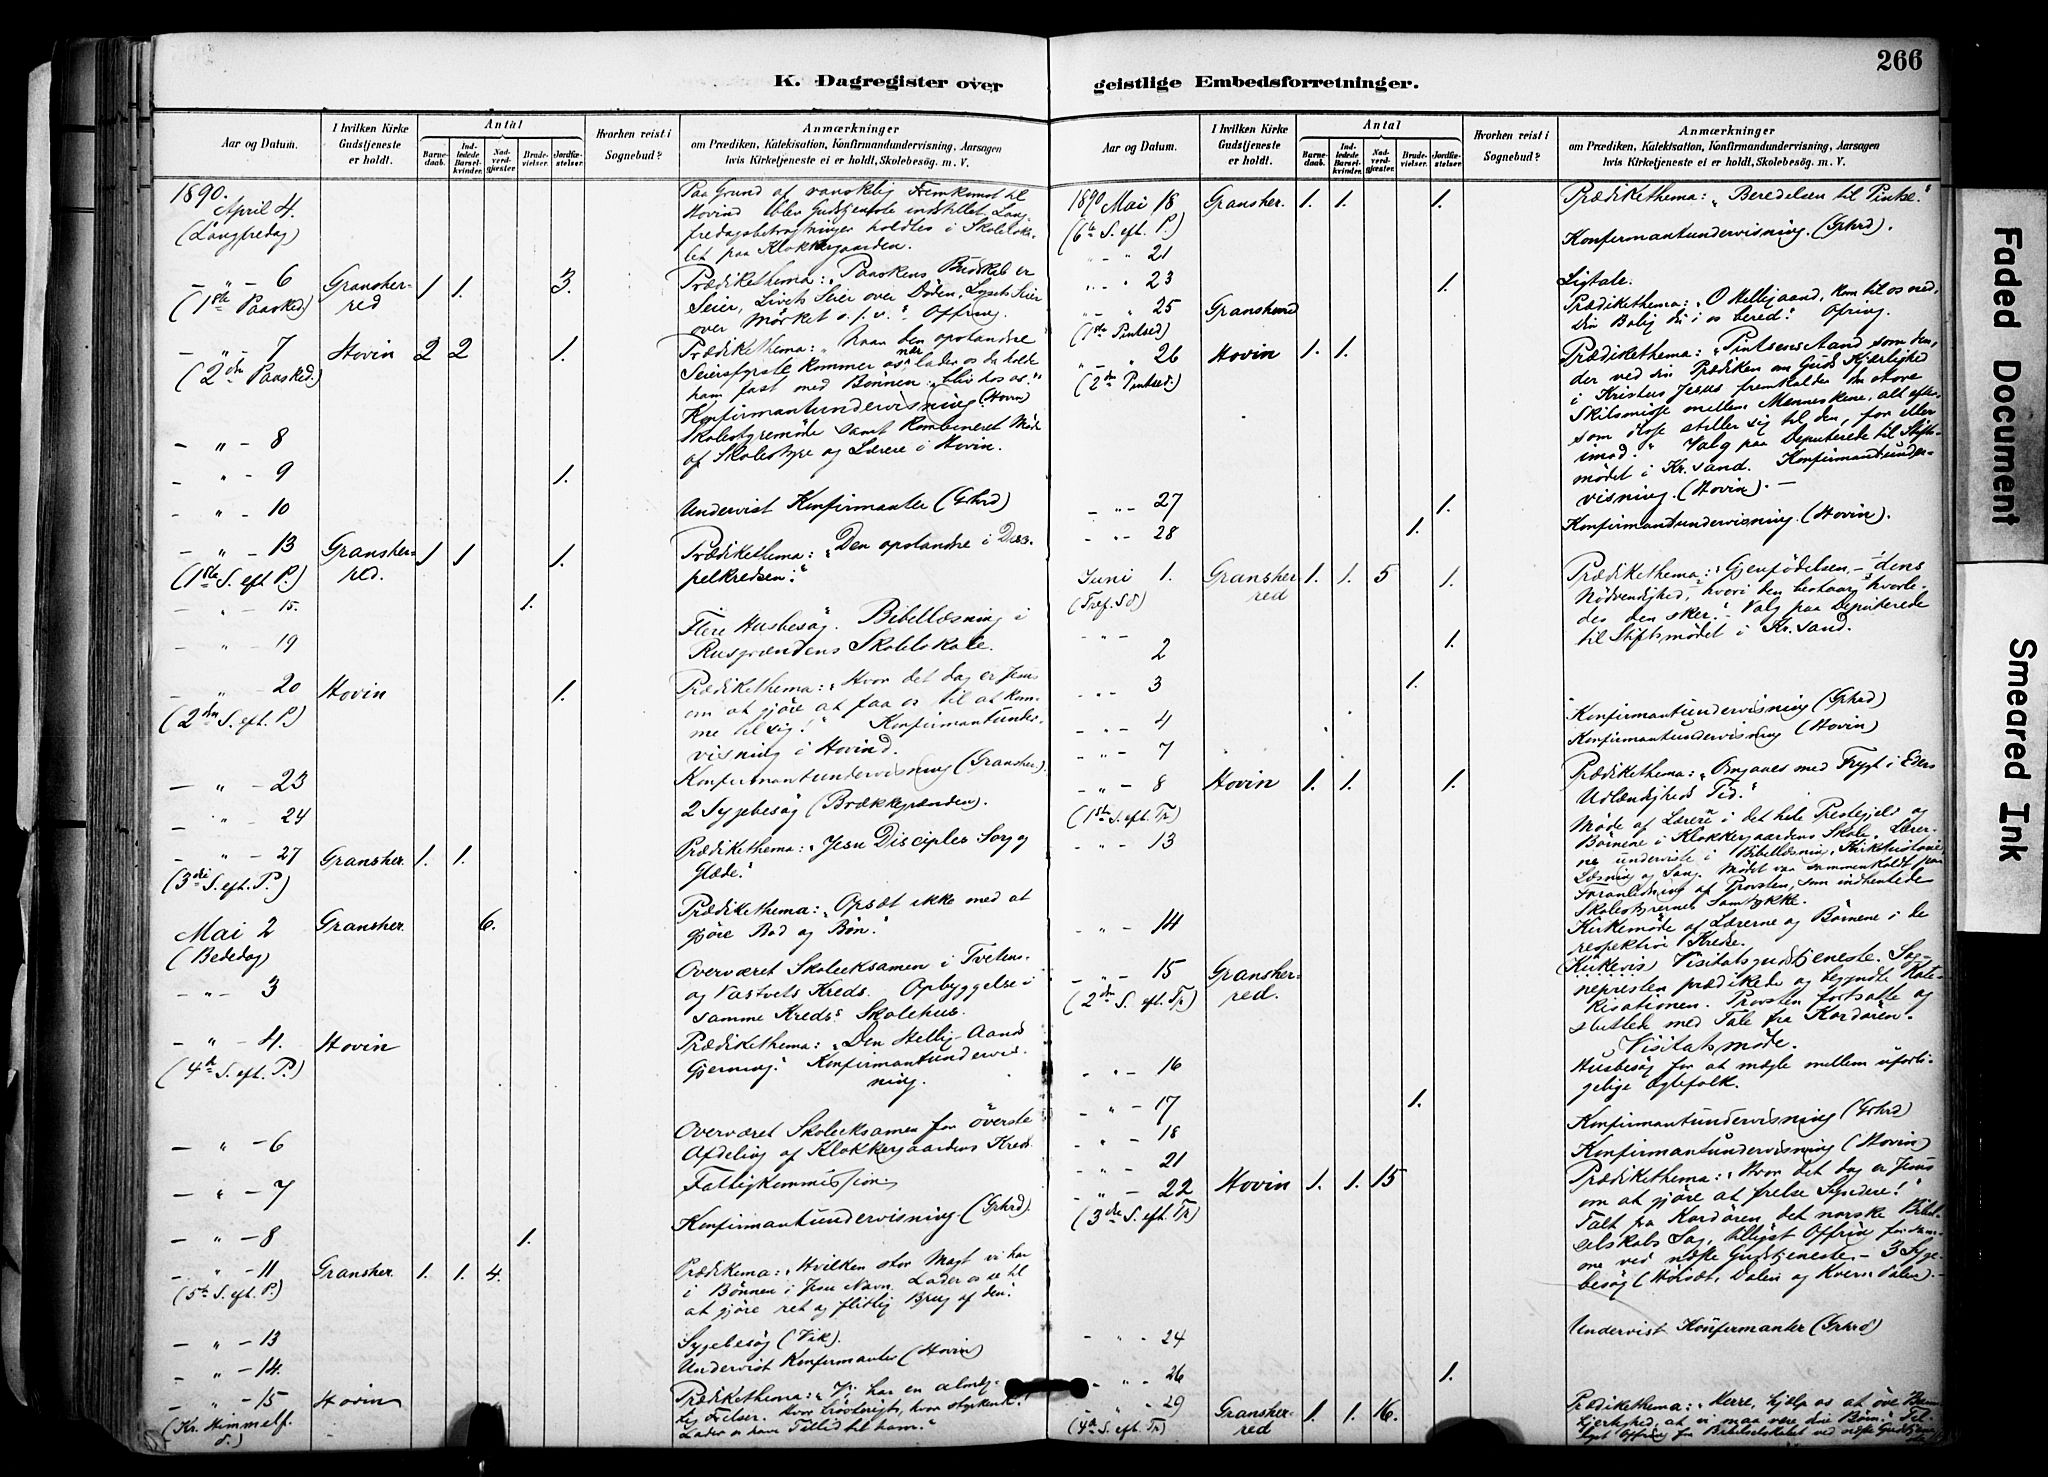 266
K. Dagregister over
geistlige Embedsforretninger.
Aar og Datum.
I hvilken Kirke Gudstjeneste er holdt.
Antal
Barnedaab.
Indledede Barselkvinder.
Nadverdgjæster.
Brudevielser.
Jordfæstelser.
Hvorhen reist i Sognebud?
Anmærkninger
om Prædiken, Katekisation, Konfirmandundervisning, Aarsagen
hvis Kirketjeneste ei er holdt, Skolebesøg, m. V.
1890.
April 4.
(Langfredag)
Paa Grund af vanskelig Fremkomst til
Hovind blev Gudstjeneste indstillet. Lang-
fredagsbetragtninger holdtes i Skoleloka-
let paa Klokkergaarden.
— „ — 6 Gransher- 1 1. 3. Prædikethema: „Paaskens Budskab er
(1ste Paasked.) red Seier, Livets Seier over Døden, Lysets Seier
over Mørket o.s.v." Offring.
— „ — 7 Hovin 2 2 1. Prædikethema: „Naar den opstandne
(2den Paasked.) Seiersfyrste kommer os nær lader os da holde
ham fast med Bønnen: „bliv hos os."
Konfirmantundervisning. (Hovin)
— „ — 8 Skolestyremøde samt kombineret Møde
af Skolestyre og Lærere i Hovin.
— „ — 9 1.
— „ — 10 Undervist Konfirmanter (Grhrd)
— „ — 13 Gransher- 1 1 1. Prædikethema: „Den opstandne i Disci-
(1ste S. eft. P.) red. pelkredsen."
— „ — 15. 1.
Flere Husbesøg. Bibellæsning i
— „ — 19 Skolelokale.
— „ — 20 Hovin 1. Prædikethema: „Hvor det dag er Jesus
(2den S. eft. P.) om at gjøre at faa os til at kom-
me til sig!" Konfirmantunder-
visning i Hovind.
— „ — 23 Konfirmantundervisning (Gransher).
— „ — 24 2 Sygebesøg (Brækkegrænden).
— „ — 27 Gransher. 1. 1. Prædikethema: „Jesu Disciples Sorg og
(3die S. eft. P.) Glæde."
Mai 2 Gransher. 6. Prædikethema: „Opsæt ikke med at
(Bededag) gjøre Bod og Bøn."
— „ — 3 Overværet Skoleeksamen i
og Vastveits Kreds. Opbyggelse i
samme Kreds's Skolehus.
— „ — 4. Hovin Prædikethema: „Den Hellig-Aands
(4de S. eft. P.) Gjerning." Konfirmantundervis-
ning.
— „ — 6 Overværet Skoleeksamen for øverste
Afdeling af Klokkergaardens Kreds.
— „ — 7 Fattigkommission
Konfirmantundervisning. (Grhrd).
— „ — 8 1.
— „ — 11 Gransher. 1. 1. 4. Prædikema: „Hvilken stor Magt vi har
(5te S. eft. P.) i Bønnen i Jesu Navn. Lader os se til
at gjøre ret og flittig Brug af den."
— „ — 13 Sygebesøg (Vik).
— „ — 14. Undervist Konfirmanter (Hovin)
— „ — 15 Hovin Prædikethema: „Vi har en almæg-
(Kr. Himmelf. d.) tig Frelser. Hvor trøsterigt, hvor styrkende!
Lader os have Tillid til ham."
Aar og Datum.
I hvilken Kirke Gudstjeneste er holdt.
Antal
Barnedaab.
Indledede Barselkvinder.
Nadverdgjæster.
Brudevielser.
Jordfæstelser.
Hvorhen reist i Sognebud?
Anmærkninger
om Prædiken, Katekisation, Konfirmandundervisning, Aarsagen
hvis Kirketjeneste ei er holdt, Skolebesøg, m. V.
1890 Mai 18 Gransher. 1. 1. 1. Prædikethema: „Beredelsen til Pintse."
(6te S. eft. P.)
„ „ 21 Konfirmantundervisning. (Grhrd).
„ „ 23 1. Ligtale.
„ — „ 25 Gransherred Prædikethema: „O Helligaand, kom til os ned,
(1ste Pintsed) Din Bolig du i os bered!" Ofring.
„ — „ 26 Hovin 1. 1. Prædikethema: „Pintsens Aand som den,
(2den Pintsed.) der ved din Prædiken om Guds Kjærlighed
i Kristus Jesus fremkalder den store
Skilsmisse mellem Menneskene, alt efter-
som disse stiller sig til den, for eller
imod." Valg paa Deputerede til Stifts-
mødet i Kr.sand. Konfirmantunder-
visning. (Hovin). —
— „ — 27 1.
— „ — 28 1. Konfirmandundervisning. (Hovin).
Juni 1. Gransher- 1. 1. 5 1. Prædikethema: „Gjenfødelsen, — dens
(Tref. Sd) red Nødvendighed, hvori den bestaar, hvorle-
des den sker." — Valg paa Deputerede
til Stiftsmødet i Kr.sand.
— „ — 2 1.
— „ — 3 1.
— „ — 4 Konfirmantundervisning (Grhrd)
— „ — 7 Konfirmantundervisning (Hovin)
— „ — 8 Hovin 1. 1. 1. Prædikethema: „Omgaaes med Frygt i Eders
(1ste S. eft. Tr) Udlændigheds Tid."
— „ — 13 Møde af Lærere i det hele Prestegjeld og
Børnene i Klokkergaardens Skole. Lærer-
ne underviste i Bibellæsning, Kirkehistorie,
Læsning og Sang. Mødet var sammenkaldt paa
Foranledning af Provsten, som indhentede
Skolestyrernes Samtykke.
— „ — 14 Kirkemøde af Lærerne og Børnene i de
respektive Kredse.
— „ — 15 Gransher- (Kirkevis) Visitatsgudstjeneste. Sog-
(2den S. eft. Tr) red. nepresten prædikede og begyndte Kate-
kisationen. Provsten fortsatte og
sluttede med Tale fra Kordøren.
Visitatsmøde.
— „ — 16 Husbesøg for at mægle mellem uforli-
gelige Ægtefolk.
— „ — 17 1.
— „ — 18 Konfirmantundervisning (Grhrd)
— „ — 21 Konfirmantundervisning (Hovin)
— „ — 22 Hovin 1. 1. 15 Prædikethema: „Hvor det dog er Jesus
(3die S. eft. Tr) om at gjøre at frelse Syndere!"
Talt fra Kordøren det norske Bibel-
selskabs Sag, tillyst Offring for sam-
me ved næste Gudstjeneste — 3 Syge-
besøg (Dalen og Kverndalen). —
— „ — 24 Undervist Konfirmanter (Grhrd)
— „ — 26 1.
— „ — 29 Gransher- 1. 1. 16. Prædikethema: „Herre, hjælp os at øve Barm-
(4de S. eft. Tr) red hjertighed, at vi maa være dine Børn." Til-
lyst Offring for Bibelselskabet ved næste
Faded Document
Smeared Ink